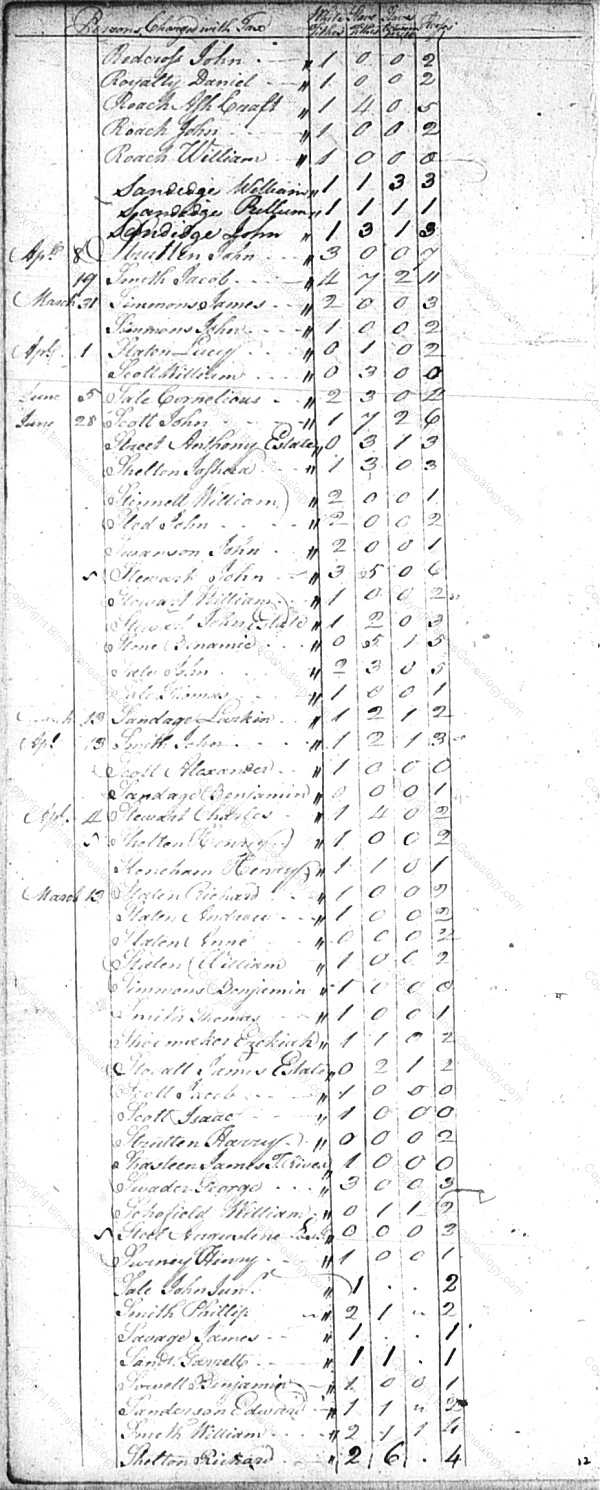 Persons Charged with Tax White Slave Slave
Redcross John " 1 0 0 2
Royalty Daniel " 1 0 0 2
Roach Ash Craft " 1 4 0 5
Roach John " 1 0 0 2
Roach William " 1 0 0 0
Sandidge William " 1 1 3 3
Sandidge Pullum " 1 1 1 1
Sandidge John " 1 3 1 3
Apl 8 John " 3 0 0 7
19 Smith Jacob " 4 7 2 11
March 31 Simmons James " 2 0 0 3
Simmons John " 1 0 0 2
Apl 1 Staton Lucy " 0 1 0 2
Scott William " 0 3 0 0
June 5 Sale Cornelious " 2 3 0 2
June 28 Scott John " 1 7 2 6
Street Anthony Estate " 0 3 1 3
Shelton " 1 3 0 3
Stinnett William " 2 0 0 1
John " 2 0 0 2
Swanson John " 2 0 0 1
5 Stewart John " 3 5 0 6
Stewart William " 1 0 0 2
John Estate " 1 2 0 3
Stone " 0 5 1 5
Sale John " 2 3 0 5
Sale Thomas " 1 0 0 1
March 13 Sandage Larkin " 1 2 1 2
Apl 13 Smith John " 1 2 1 3
Scott Alexander " 1 0 0 0
Sandage Benjamin " 0 0 0 1
Apl 4 Stewart Charles " 1 4 0 2
5 Shelton Henry " 1 0 0 2
Stoneham Henry " 1 1 0 1
March 13 Staton Richard " 1 0 0 2
Staton Andrew " 1 0 0 2
Staton Anne " 0 0 0 2
Staton William " 1 0 0 2
Simmons Benjamin " 1 0 0 0
Smith Thomas " 1 0 0 1
Shoemaker Ezekiah " 1 1 0 2
James Estate " 0 2 1 2
Scott Jacob " 1 0 0 0
Scott Isaac " 1 0 0 0
Strutten Harry " 0 0 0 2
Shasteen James " 1 0 0 0
Swader George " 3 0 0 3
Schofield William " 0 1 1 2
5 Augustine " 0 0 0 3
Swiney Henry " 1 0 0 1
Sale John Junr " 1 . . 2
Smith Phillip " 2 1 " 2
Savage James " 1 . . 1
Garrett " 1 1 . 1
Sowell Benjamin " 1 0 0 1
Sanderson Edward " 1 1 " 2
Smith William " 2 1 1 4
Shelton Richard " 2 6 . 4
12